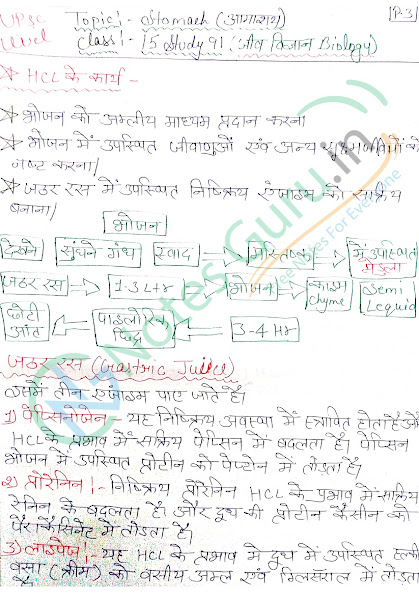 UPSC Level
Topic:- Stomach (आमाशय)
P-3
Class:- 15 Study 91 (जीव विज्ञान Biology)
* HCL के कार्य -
* भोजन को अम्लीय माध्यम प्रदान करना
* भोजन में उपस्थित जीवाणुओं एवं अन्य सूक्ष्मजीवों को
नष्ट करना/
* जठर रस में उपस्थित निष्क्रिय एंजाइम को सक्रिय
बनाना/
भोजन
देखने सुंघने गंध स्वाद → मस्तिष्क → में उपस्थित मेडुला
जठर रस → 1-3 Ltr → भोजन काइम Chyme Semi Lequid
छोटी आंत ← पाइलोरिक छिद्र ← 3-4 Hr
जठर रस (Gastric Juice)
उसमें तीन एंजाइम पाए जाते है।
1) पेप्सिनोजेन - यह निष्क्रिय अवस्था में स्त्रावित होता है और
HCL के प्रभाव में सक्रिय पेप्सिन में बदलता है। पेप्सिन
भोजन में उपस्थित प्रोटीन को पेप्टोन में तोड़ता है।
2) प्रोरेनिन!- निष्क्रिय प्रोरेनिन HCL के प्रभाव में सक्रिय
रेनिन के बदलता है। और दूध की प्रोटीन कैसीन को
पैरा कैसिनेट में तोड़ता है।
3) लाइपेज!- यह HCL के प्रभाव में दूध में उपस्थित हल्की
वसा (क्रीम) को वसीय अम्ल एवं ग्लिसरॉल में तोड़ता
है।
NotesGuru.in
Free Notes For Everyone